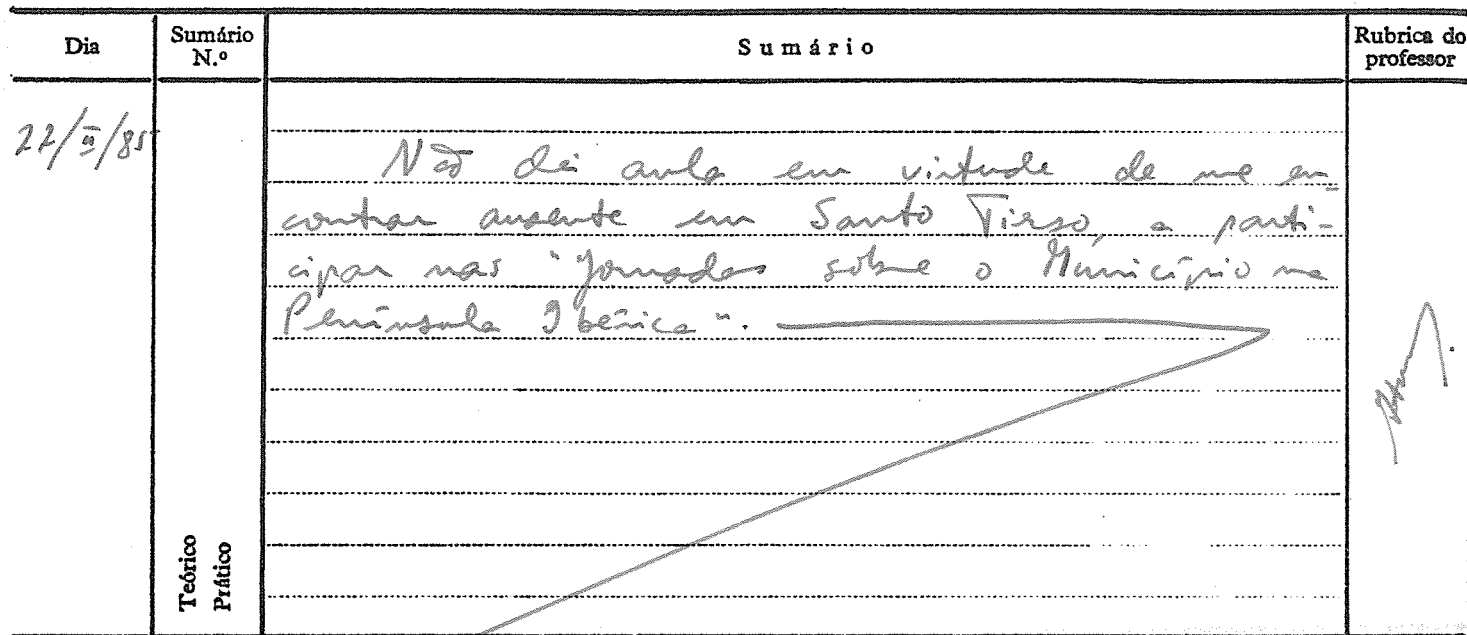 Dia
Sumário N.º
Sumário
Rubrica do professor
22/II/85
Não dei aula em virtude de me en-
contrar ausente em Santo Tirso, a parti-
cipar nas "Jornadas sôbre o Município na
Península Ibérica".
Teórico
Prático